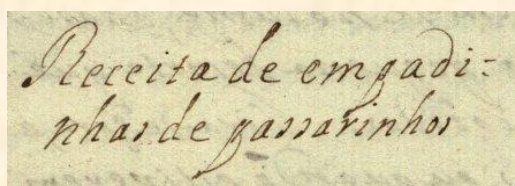 Receita de empadi=
nhas de passarinhos